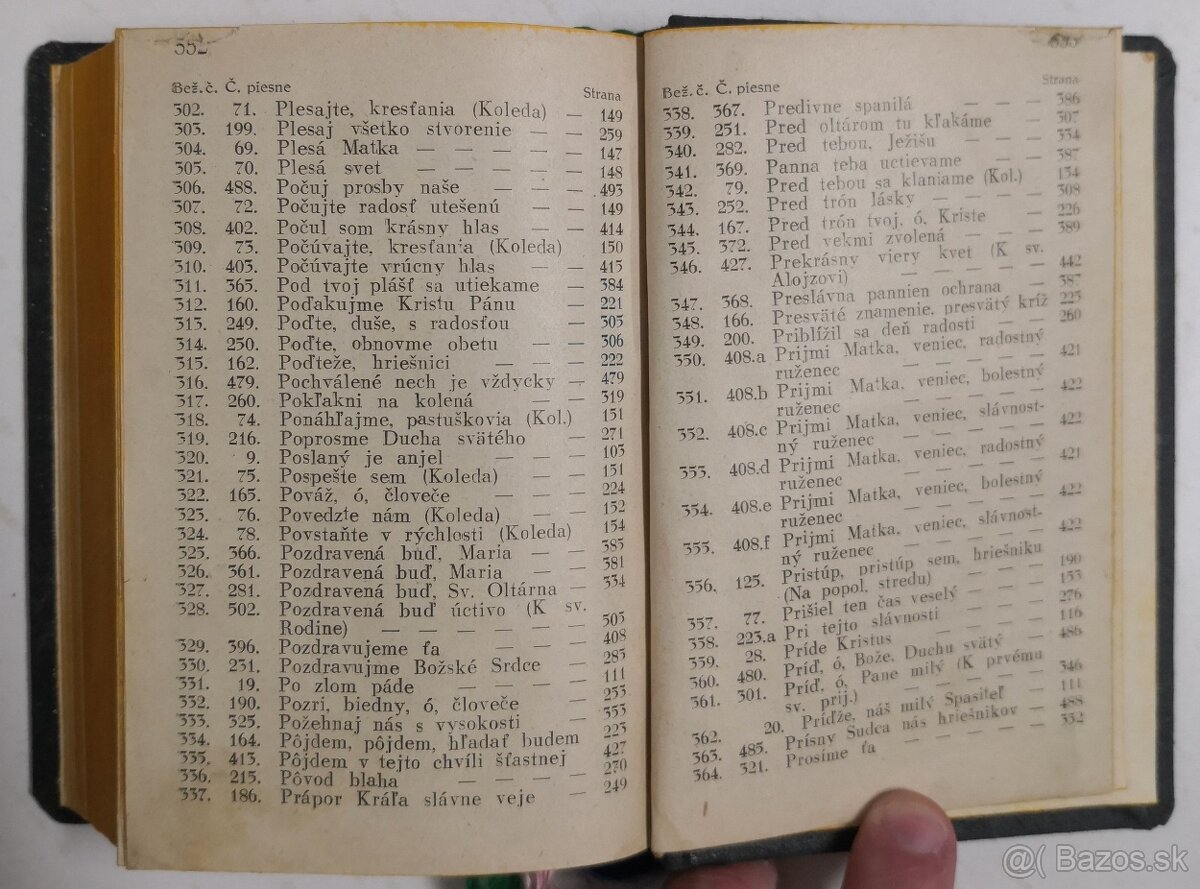 552
Bež.č. Č. piesne Strana
302. 71. Plesajte, kresťania (Koleda) — 149
303. 199. Plesaj všetko stvorenie — — 259
304. 69. Plesá Matka — — — — — 147
305. 70. Plesá svet — — — — — 148
306. 488. Počuj prosby naše — — — 493
307. 72. Počujte radosť utešenú — — 149
308. 402. Počul som krásny hlas — — 414
309. 73. Počúvajte, kresťania (Koledа) 150
310. 403. Počúvajte vrúcny hlas — — 415
311. 365. Pod tvoj plášť sa utiekame — 384
312. 160. Poďakujme Kristu Pánu — — 221
313. 249. Poďte, duše, s radosťou — 305
314. 250. Poďte, obnovme obetu — — 306
315. 162. Poďteže, hriešnici — — — 222
316. 479. Pochválené nech je vždycky — 479
317. 260. Pokľakni na kolená — — — 319
318. 74. Ponáhľajme, pastuškovia (Kol.) 151
319. 216. Poprosme Ducha svätého — 271
320. 9. Poslaný je anjel — — — 103
321. 75. Pospešte sem (Koleda) — — 151
322. 165. Pováž, ó, človeče — — — 224
323. 76. Povedzte nám (Koleda) — — 152
324. 78. Povstaňte v rýchlosti (Koleda) 154
325. 366. Pozdravená buď, Maria — — 385
326. 361. Pozdravená buď, Maria — — 381
327. 281. Pozdravená buď, Sv. Oltárna — 334
328. 502. Pozdravená buď úctivo (K sv.
Rodine) — — — — — — 505
329. 396. Pozdravujeme ťa — — — 408
330. 231. Pozdravujme Božské Srdce — 285
331. 19. Po zlom páde — — — — 111
332. 190. Pozri, biedny, ó, človeče — — 253
333. 325. Požehnaj nás s vysokosti — — 353
334. 164. Pôjdem, pôjdem, hľadať budem 223
335. 413. Pôjdem v tejto chvíli šťastnej 427
336. 215. Pôvod blaha — — — — 270
337. 186. Prápor Kráľa slávne veje — 249
Bež.č. Č. piesne Strana
338. 367. Predivne spanilá — — — 386
339. 251. Pred oltárom tu kľakáme — 307
340. 282. Pred tebou, Ježišu — — — 334
341. 369. Panna teba uctievame — — 387
342. 79. Pred tebou sa klaniame (Kol.) 154
343. 252. Pred trón lásky — — — — 308
344. 167. Pred trón tvoj, ó, Kriste — 226
345. 372. Pred vekmi zvolená — — — 389
346. 427. Prekrásny viery kvet (K sv.
Alojzovi) — — — — — 442
347. 368. Preslávna pannien ochrana — 387
348. 166. Presväté znamenie, presvätý kríž 225
349. 200. Priblížil sa deň radosti — — 260
350. 408.a Prijmi Matka, veniec, radostný
ruženec — — — — — 421
351. 408.b Prijmi Matka, veniec, bolestný
ruženec — — — — — 422
352. 408.c Prijmi Matka, veniec, slávnost-
ný ruženec — — — — 422
353. 408.d Prijmi Matka, veniec, radostný
ruženec — — — — — 421
354. 408.e Prijmi Matka, veniec, bolestný
ruženec — — — — — 422
355. 408.f Prijmi Matka, veniec, slávnost-
ný ruženec — — — — 422
356. 125. Pristúp, pristup sem, hriešniku
(Na popol. stredu) — — — 190
357. 77. Prišiel ten čas veselý — — 153
358. 223.a Pri tejto slávnosti — — — 276
359. 28. Príde Kristus — — — — 116
360. 480. Príď, ó, Bože, Duchu svätý — 486
361. 301. Príď, ó, Pane milý (K prvému
sv. prij.) — — — — — 346
362. 20. Príďže, náš milý Spasiteľ — 111
363. 485. Prísny Sudca nás hriešnikov — 488
364. 321. Prosíme ťa — — — — 352
@( Bazos.sk